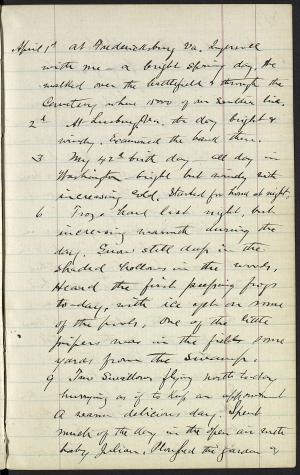 April 1st at Fredericksburg Va, Ingersoll
with me – a bright spring day. We
walked over the battlefield & through the
Cemetery where 15000 of our soldiers lie.
2d At Lynchburg, the day bright &
windy. Examined the bank there.
3 My 42d birth day – all day in
Washington bright but windy with
increasing cold. Started for home at night.
6 Froze hard last night, but
increasing warmth during the
day. Snow still deep in the
shaded hollows in the woods.
Heard the first peeping frogs
to-day, with ice yet on some
of the pools, one of the little
pipers was in the fields some
yards from the swamp.
9 Two Swallows flying north to-day
hurrying as if to keep an appointment
A warm delicious day. Spent
much of the day in the open air with
baby Julian. Plowed the garden &